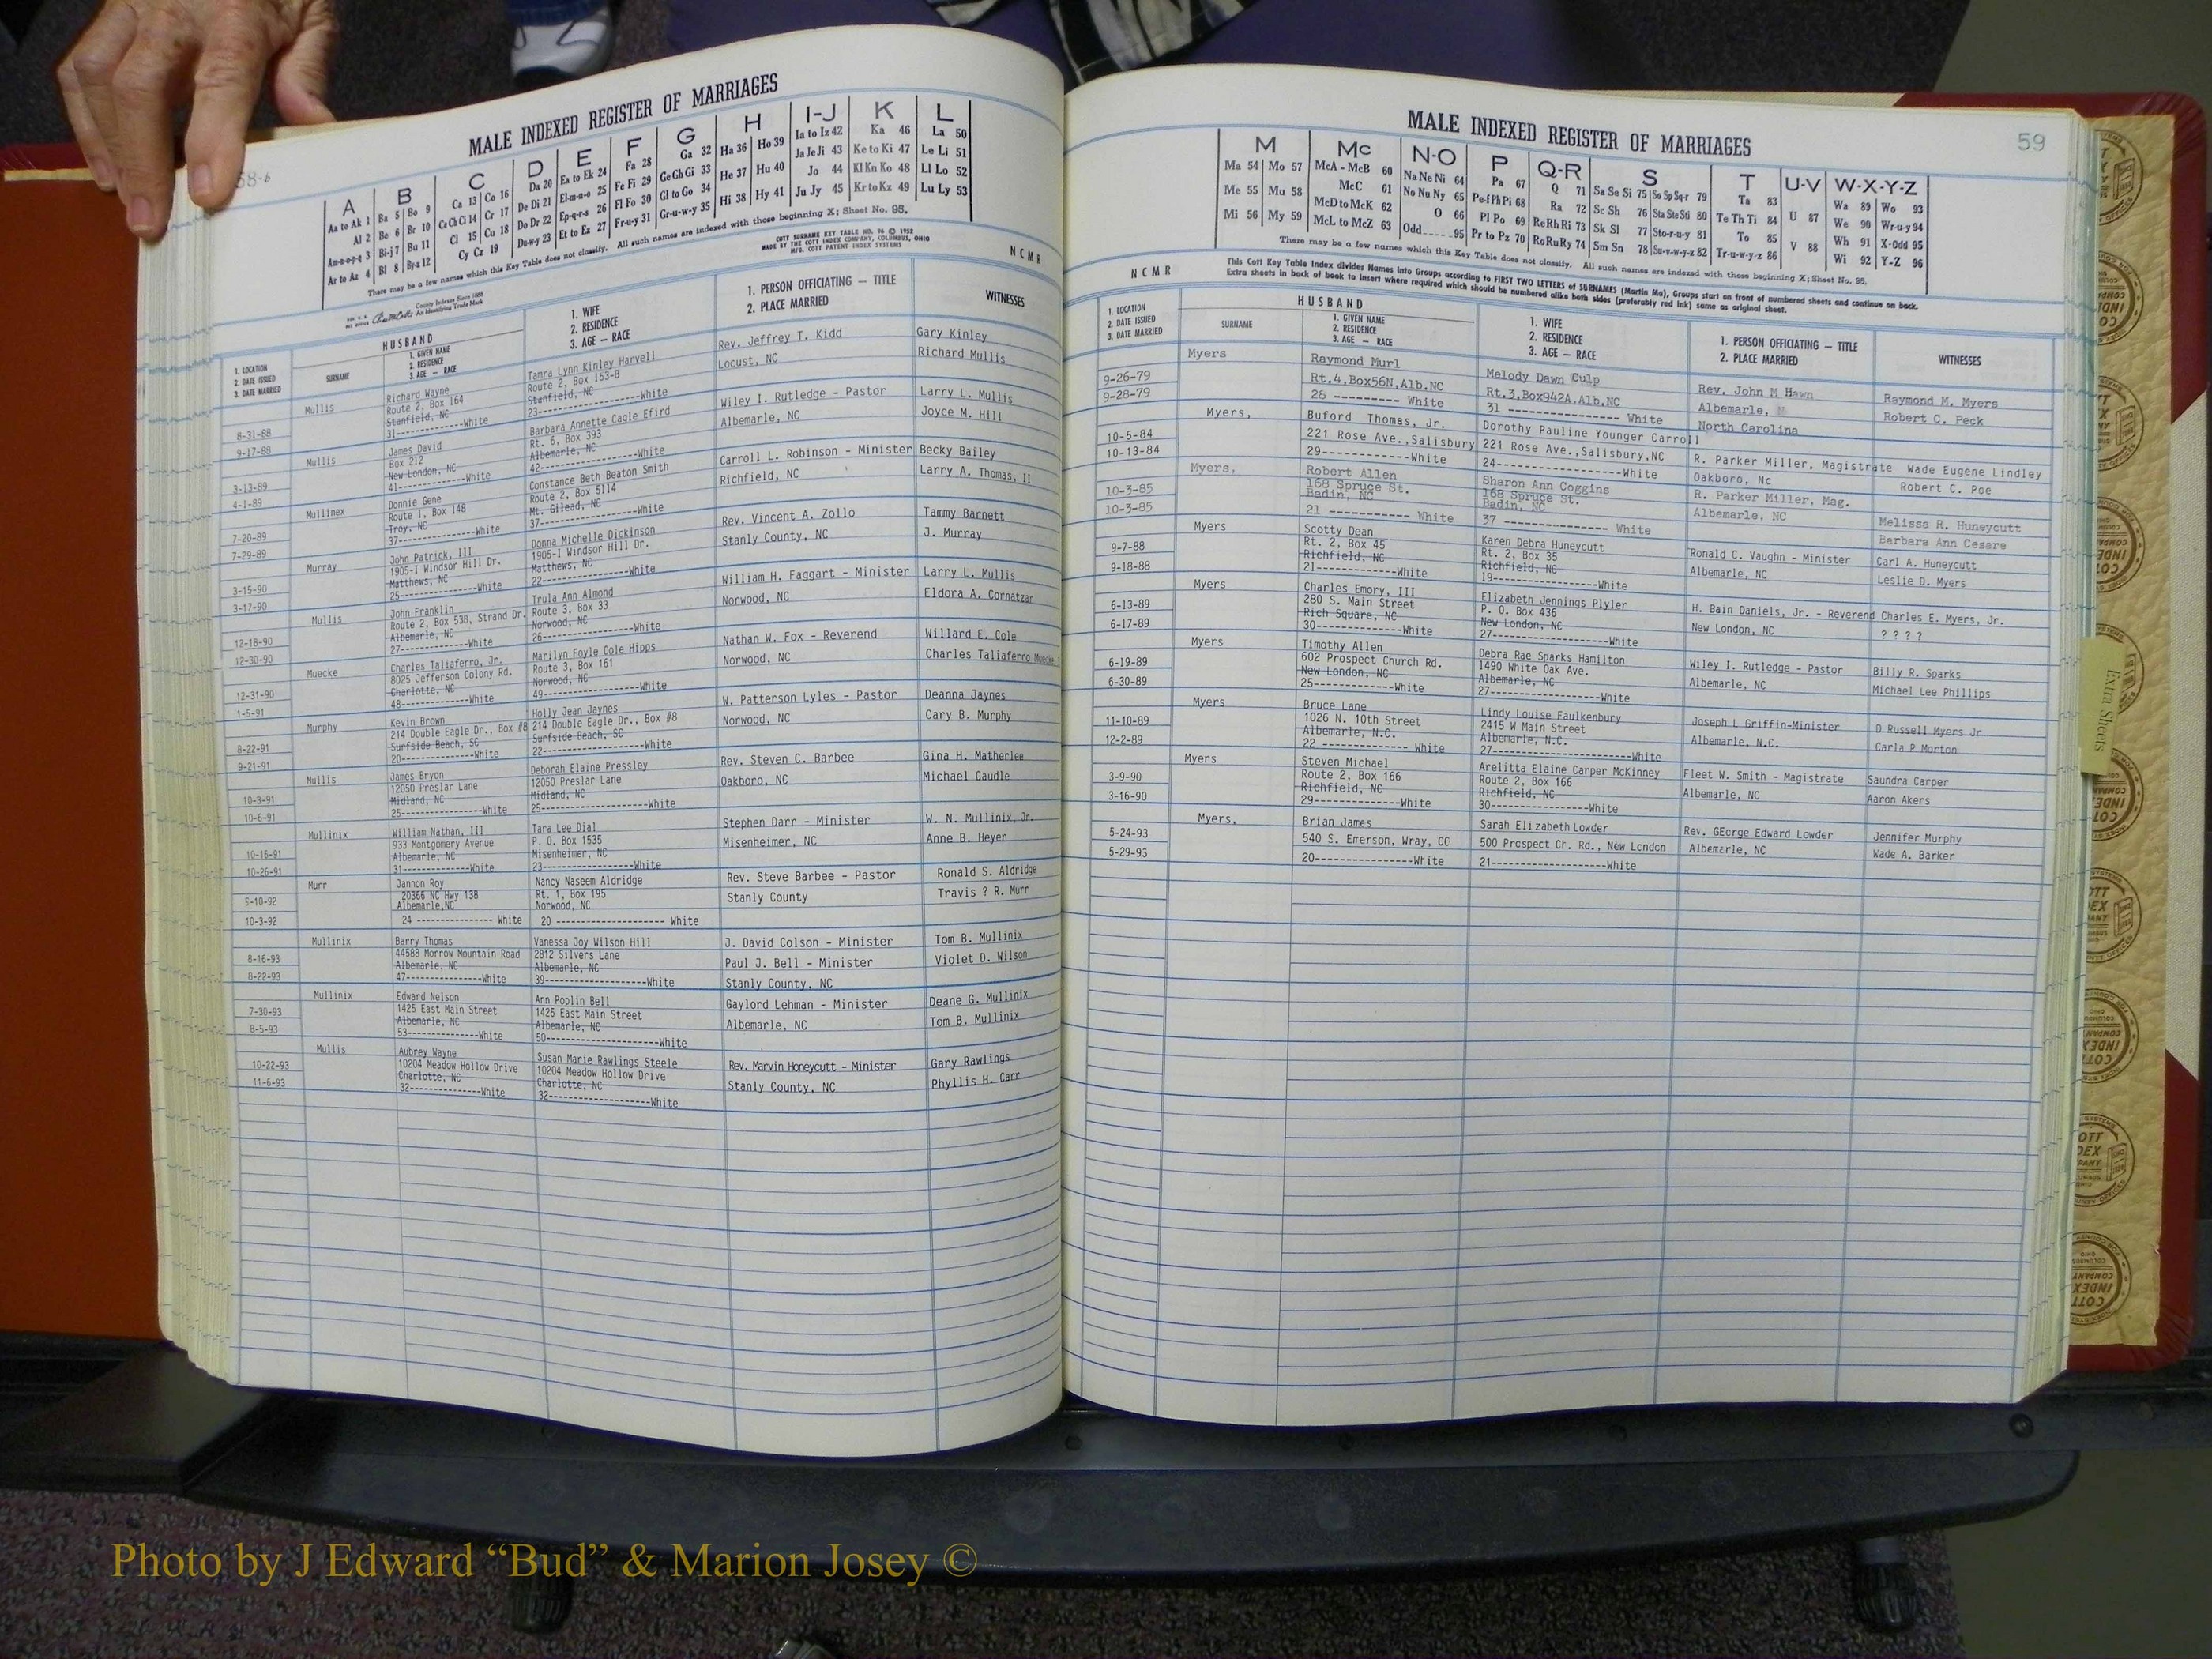 58-b
MALE INDEXED REGISTER OF MARRIAGES
A B C D E F G H I-J K L
Aa to Ak 1 Ba 5 Bo 9 Ca 13 Co 16 Da 20 Ea to Ek 24 Fa 28 Ga 32 Ha 36 Ho 39 Ia to Iz 42 Ka 46 La 50
Al 2 Be 6 Br 10 Ce Ch Ci 14 Cr 17 De Di 21 El-m-n-o 25 Fe Fi 29 Ge Gh Gi 33 He 37 Hu 40 Ja Je Ji 43 Ke to Ki 47 Le Li 51
Am-n-o-p-q 3 Bi-j 7 Bu 11 Cl 15 Cu 18 Do Dr 22 Ep-q-r-s 26 Fl Fo 30 Gl to Go 34 Hi 38 Hy 41 Jo 44 Kl Kn Ko 48 Ll Lo 52
Ar to Az 4 Bl 8 By-z 12 Cy Cz 19 Du-w-y 23 Et to Ez 27 Fr-u-y 31 Gr-u-w-y 35 Ju Jy 45 Kr to Kz 49 Lu Ly 53
There may be a few names which this Key Table does not classify. All such names are indexed with those beginning X; Sheet No. 95.
County Indexes Since 1888
An Identifying Trade Mark
COTT SURNAME KEY TABLE NO. 96 © 1952
MADE BY THE COTT INDEX COMPANY, COLUMBUS, OHIO
MFG. COTT PATENT INDEX SYSTEMS
NCMR
1. LOCATION
2. DATE ISSUED
3. DATE MARRIED
HUSBAND
SURNAME
1. GIVEN NAME
2. RESIDENCE
3. AGE — RACE
1. WIFE
2. RESIDENCE
3. AGE — RACE
1. PERSON OFFICIATING — TITLE
2. PLACE MARRIED
WITNESSES
Mullis Richard Wayne Tamra Lynn Kinley Harvell Rev. Jeffrey T. Kidd Gary Kinley
Route 2, Box 164 Route 2, Box 153-B Locust, NC Richard Mullis
8-31-88 Stanfield, NC Stanfield, NC
9-17-88 31-------------White 23--------------------White
Mullis James David Barbara Annette Cagle Efird Wiley I. Rutledge - Pastor Larry L. Mullis
Box 212 Rt. 6, Box 393 Albemarle, NC Joyce M. Hill
3-13-89 New London, NC Albemarle, NC
4-1-89 41--------------White 42-------------------White
Mullinex Donnie Gene Constance Beth Beaton Smith Carroll L. Robinson - Minister Becky Bailey
Route 1, Box 148 Route 2, Box 5114 Richfield, NC Larry A. Thomas, II
7-20-89 Troy, NC Mt. Gilead, NC
7-29-89 37---------------White 37------------------White
Murray John Patrick, III Donna Michelle Dickinson Rev. Vincent A. Zollo Tammy Barnett
1905-I Windsor Hill Dr. 1905-I Windsor Hill Dr. Stanly County, NC J. Murray
3-15-90 Matthews, NC Matthews, NC
3-17-90 25--------------White 22-----------------White
Mullis John Franklin Trula Ann Almond William H. Faggart - Minister Larry L. Mullis
Route 2, Box 538, Strand Dr. Route 3, Box 33 Norwood, NC Eldora A. Cornatzar
12-18-90 Albemarle, NC Norwood, NC
12-30-90 27-------------White 26------------------White
Muecke Charles Taliaferro, Jr. Marilyn Foyle Cole Hipps Nathan W. Fox - Reverend Willard E. Cole
8025 Jefferson Colony Rd. Route 3, Box 161 Norwood, NC Charles Taliaferro Muecke
12-31-90 Charlotte, NC Norwood, NC
1-5-91 48--------------White 49-------------------White
Murphy Kevin Brown Holly Jean Jaynes W. Patterson Lyles - Pastor Deanna Jaynes
214 Double Eagle Dr., Box #8 214 Double Eagle Dr., Box #8 Norwood, NC Cary B. Murphy
8-22-91 Surfside Beach, SC Surfside Beach, SC
9-21-91 20---------------White 22--------------------White
Mullis James Bryon Deborah Elaine Pressley Rev. Steven C. Barbee Gina H. Matherlee
12050 Preslar Lane 12050 Preslar Lane Oakboro, NC Michael Caudle
10-3-91 Midland, NC Midland, NC
10-6-91 25---------------White 25---------------------White
Mullinix William Nathan, III Tara Lee Dial Stephen Darr - Minister W. N. Mullinix, Jr.
933 Montgomery Avenue P. O. Box 1535 Misenheimer, NC Anne B. Heyer
10-16-91 Albemarle, NC Misenheimer, NC
10-26-91 31--------------White 23------------------White
Murr Jannon Roy Nancy Naseem Aldridge Rev. Steve Barbee - Pastor Ronald S. Aldridge
20366 NC Hwy 138 Rt. 1, Box 195 Stanly County Travis ? R. Murr
9-10-92 Albemarle,NC Norwood, NC
10-3-92 24 --------------- White 20 --------------------- White
Mullinix Barry Thomas Vanessa Joy Wilson Hill J. David Colson - Minister Tom B. Mullinix
44588 Morrow Mountain Road 2812 Silvers Lane Paul J. Bell - Minister Violet D. Wilson
8-16-93 Albemarle, NC Albemarle, NC
8-22-93 47---------------White 39--------------------White Stanly County, NC
Mullinix Edward Nelson Ann Poplin Bell Gaylord Lehman - Minister Deane G. Mullinix
1425 East Main Street 1425 East Main Street Albemarle, NC Tom B. Mullinix
7-30-93 Albemarle, NC Albemarle, NC
8-5-93 53---------------White 50----------------------White
Mullis Aubrey Wayne Susan Marie Rawlings Steele Rev. Marvin Honeycutt - Minister Gary Rawlings
10204 Meadow Hollow Drive 10204 Meadow Hollow Drive Stanly County, NC Phyllis H. Carr
10-22-93 Charlotte, NC Charlotte, NC
11-6-93 32--------------White 32--------------------White
59
MALE INDEXED REGISTER OF MARRIAGES
M Mc N-O P Q-R S T U-V W-X-Y-Z
Ma 54 Mo 57 McA - McB 60 Na Ne Ni 64 Pa 67 Q 71 Sa Se Si 75 So Sp Sq-r 79 Ta 83 U 87 Wa 89 Wo 93
Me 55 Mu 58 McC 61 No Nu Ny 65 Pe-f Ph Pi 68 Ra 72 Sc Sh 76 Sta Ste Sti 80 Te Th Ti 84 V 88 We 90 Wr-u-y 94
Mi 56 My 59 McD to McK 62 O 66 Pl Po 69 Re Rh Ri 73 Sk Sl 77 Sto-r-u-y 81 To 85 Wh 91 X-Odd 95
McL to McZ 63 Odd-----95 Pr to Pz 70 Ro Ru Ry 74 Sm Sn 78 Su-v-w-y-z 82 Tr-u-w-y-z 86 Wi 92 Y-Z 96
There may be a few names which this Key Table does not classify. All such names are indexed with those beginning X; Sheet No. 95.
NCMR
This Cott Key Table Index divides Names into Groups according to FIRST TWO LETTERS of SURNAMES (Martin Ma), Groups start on front of numbered sheets and continue on back.
Extra sheets in back of book to insert where required which should be numbered alike both sides (preferably red ink) same as original sheet.
1. LOCATION
2. DATE ISSUED
3. DATE MARRIED
HUSBAND
SURNAME
1. GIVEN NAME
2. RESIDENCE
3. AGE — RACE
1. WIFE
2. RESIDENCE
3. AGE — RACE
1. PERSON OFFICIATING — TITLE
2. PLACE MARRIED
WITNESSES
Myers Raymond Murl Melody Dawn Culp Rev. John M Hawn Raymond M. Myers
9-26-79 Rt.4,Box56N,Alb,NC Rt.3,Box942A,Alb,NC Albemarle, Robert C. Peck
9-28-79 26 --------- White 31 --------------- White North Carolina
Myers, Buford Thomas, Jr. Dorothy Pauline Younger Carroll R. Parker Miller, Magistrate Wade Eugene Lindley
10-5-84 221 Rose Ave.,Salisbury 221 Rose Ave.,Salisbury,NC Oakboro, Nc Robert C. Poe
10-13-84 29------------White 24-----------------White
Myers, Robert Allen Sharon Ann Coggins R. Parker Miller, Mag. Melissa R. Huneycutt
10-3-85 168 Spruce St. 168 Spruce St. Albemarle, NC Barbara Ann Cesare
Badin, NC Badin, NC
10-3-85 21 ------------ White 37 -------------- White
Myers Scotty Dean Karen Debra Huneycutt Ronald C. Vaughn - Minister Carl A. Huneycutt
9-7-88 Rt. 2, Box 45 Rt. 2, Box 35 Albemarle, NC Leslie D. Myers
Richfield, NC Richfield, NC
9-18-88 21------------White 19-----------------White
Myers Charles Emory, III Elizabeth Jennings Plyler H. Bain Daniels, Jr. - Reverend Charles E. Myers, Jr.
6-13-89 280 S. Main Street P. O. Box 436 New London, NC ? ? ? ?
Rich Square, NC New London, NC
6-17-89 30-------------White 27------------------White
Myers Timothy Allen Debra Rae Sparks Hamilton Wiley I. Rutledge - Pastor Billy R. Sparks
6-19-89 602 Prospect Church Rd. 1490 White Oak Ave. Albemarle, NC Michael Lee Phillips
New London, NC Albemarle, NC
6-30-89 25-------------White 27------------------White
Myers Bruce Lane Lindy Louise Faulkenbury Joseph L Griffin-Minister D Russell Myers Jr
11-10-89 1026 N. 10th Street 2415 W Main Street Albemarle, N.C. Carla P Morton
Albemarle, N.C. Albemarle, N.C.
12-2-89 22 ------------- White 27-----------------------White
Myers Steven Michael Arelitta Elaine Carper McKinney Fleet W. Smith - Magistrate Saundra Carper
3-9-90 Route 2, Box 166 Route 2, Box 166 Albemarle, NC Aaron Akers
Richfield, NC Richfield, NC
3-16-90 29--------------White 30----------------White
Myers, Brian James Sarah Elizabeth Lowder Rev. GEorge Edward Lowder Jennifer Murphy
5-24-93 540 S. Emerson, Wray, CO 500 Prospect Ch. Rd., New London Albemarle, NC Wade A. Barker
5-29-93 20------------------White 21-------------------White
Extra Sheets
Photo by J Edward “Bud” & Marion Josey ©